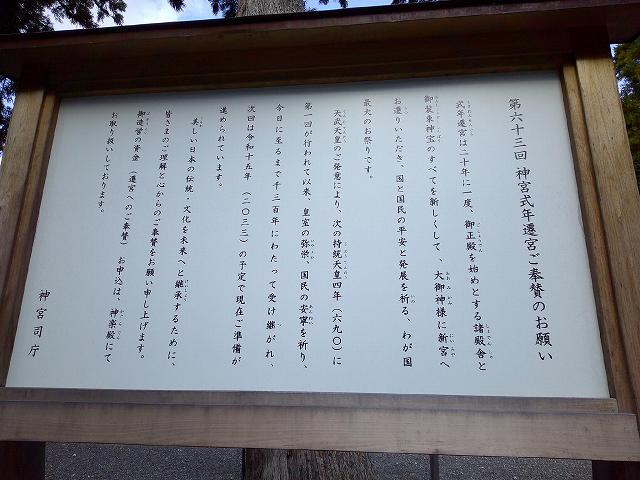 第六十三回 神宮式年遷宮ご奉賛のお願い
式年遷宮は二十年に一度、御正殿を始めとする諸殿舎と
御装束神宝のすべてを新しくして、大御神様に新宮へ
お遷りいただき、国と国民の平安と発展を祈る、わが国
最大のお祭りです。
天武天皇のご発意により、次の持統天皇四年(六九〇)に
第一回が行われて以来、皇室の弥栄、国民の安寧を祈り、
今日に至るまで千三百年にわたって受け継がれ、
次回は令和十五年(二〇三三)の予定で現在ご準備が
進められています。
美しい日本の伝統・文化を未来へと継承するために、
皆さまのご理解と心からのご奉賛をお願い申し上げます。
御造営の資金(遷宮へのご奉賛)お申込は、神楽殿にて
お取り扱いしております。
神宮司庁